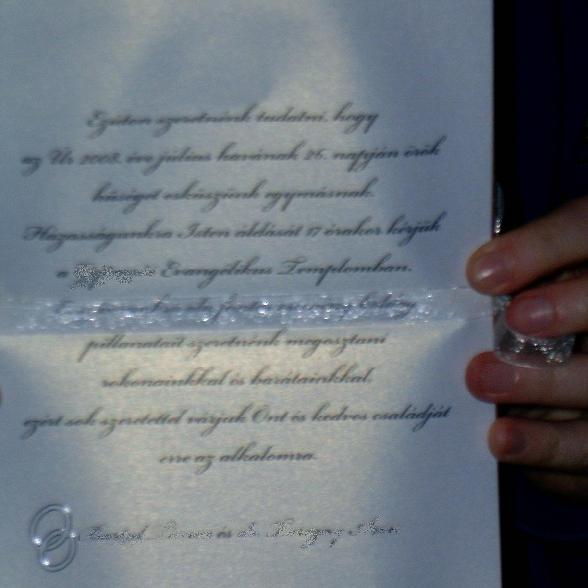 Ezúton szeretnénk tudatni, hogy
az Úr 2008. éve július havának 26. napján örök
hűséget esküszünk egymásnak.
Házasságunkra Isten áldását 17 órakor kérjük
a Evangélikus Templomban.
pillanatait szeretnénk megosztani
rokonainkkal és barátainkkal,
ezért sok szeretettel várjuk Önt és kedves családját
erre az alkalomra.
és dr.